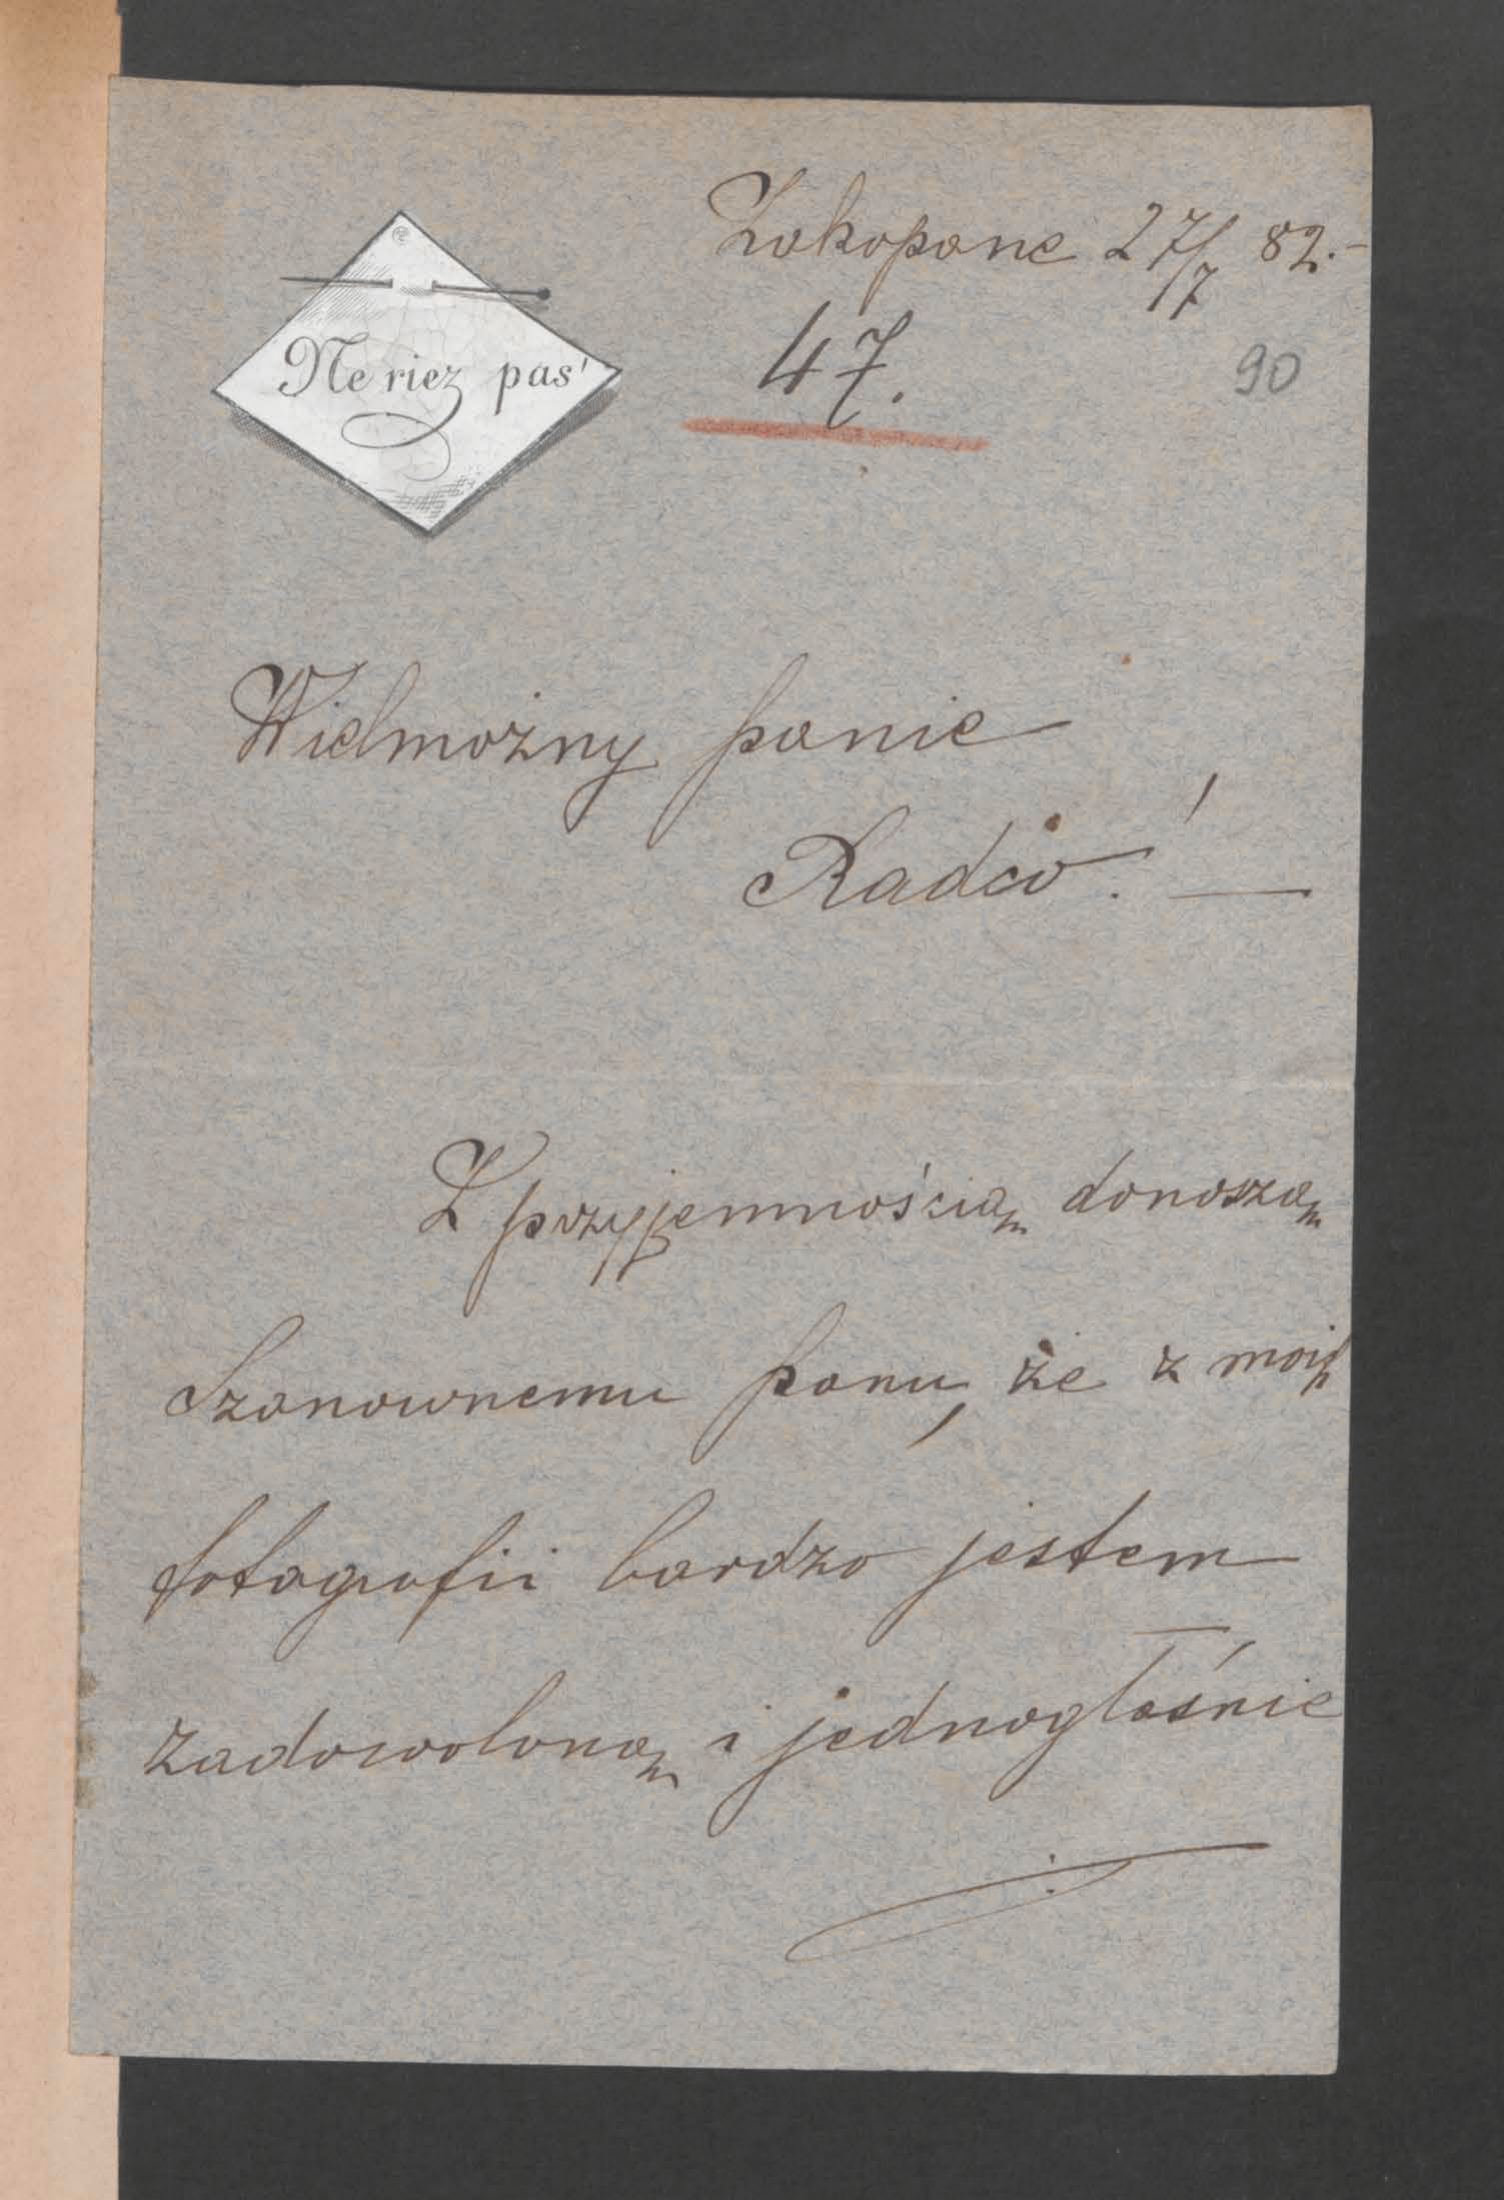 Zakopane 27/7 82.-
Ne riez pas'
47.
90
Wielmożny panie
Radco! —
Z przyjemnością donoszą
Szanownemu panu, że z moij
fotografii bardzo jestem
zadowoloną i jednogłośnie